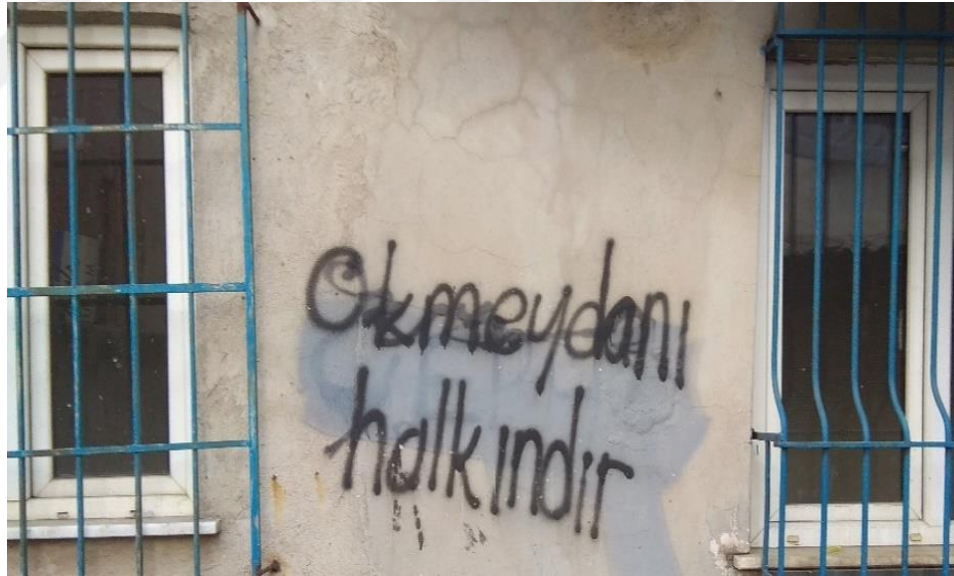 Okmeydanı
halkındır